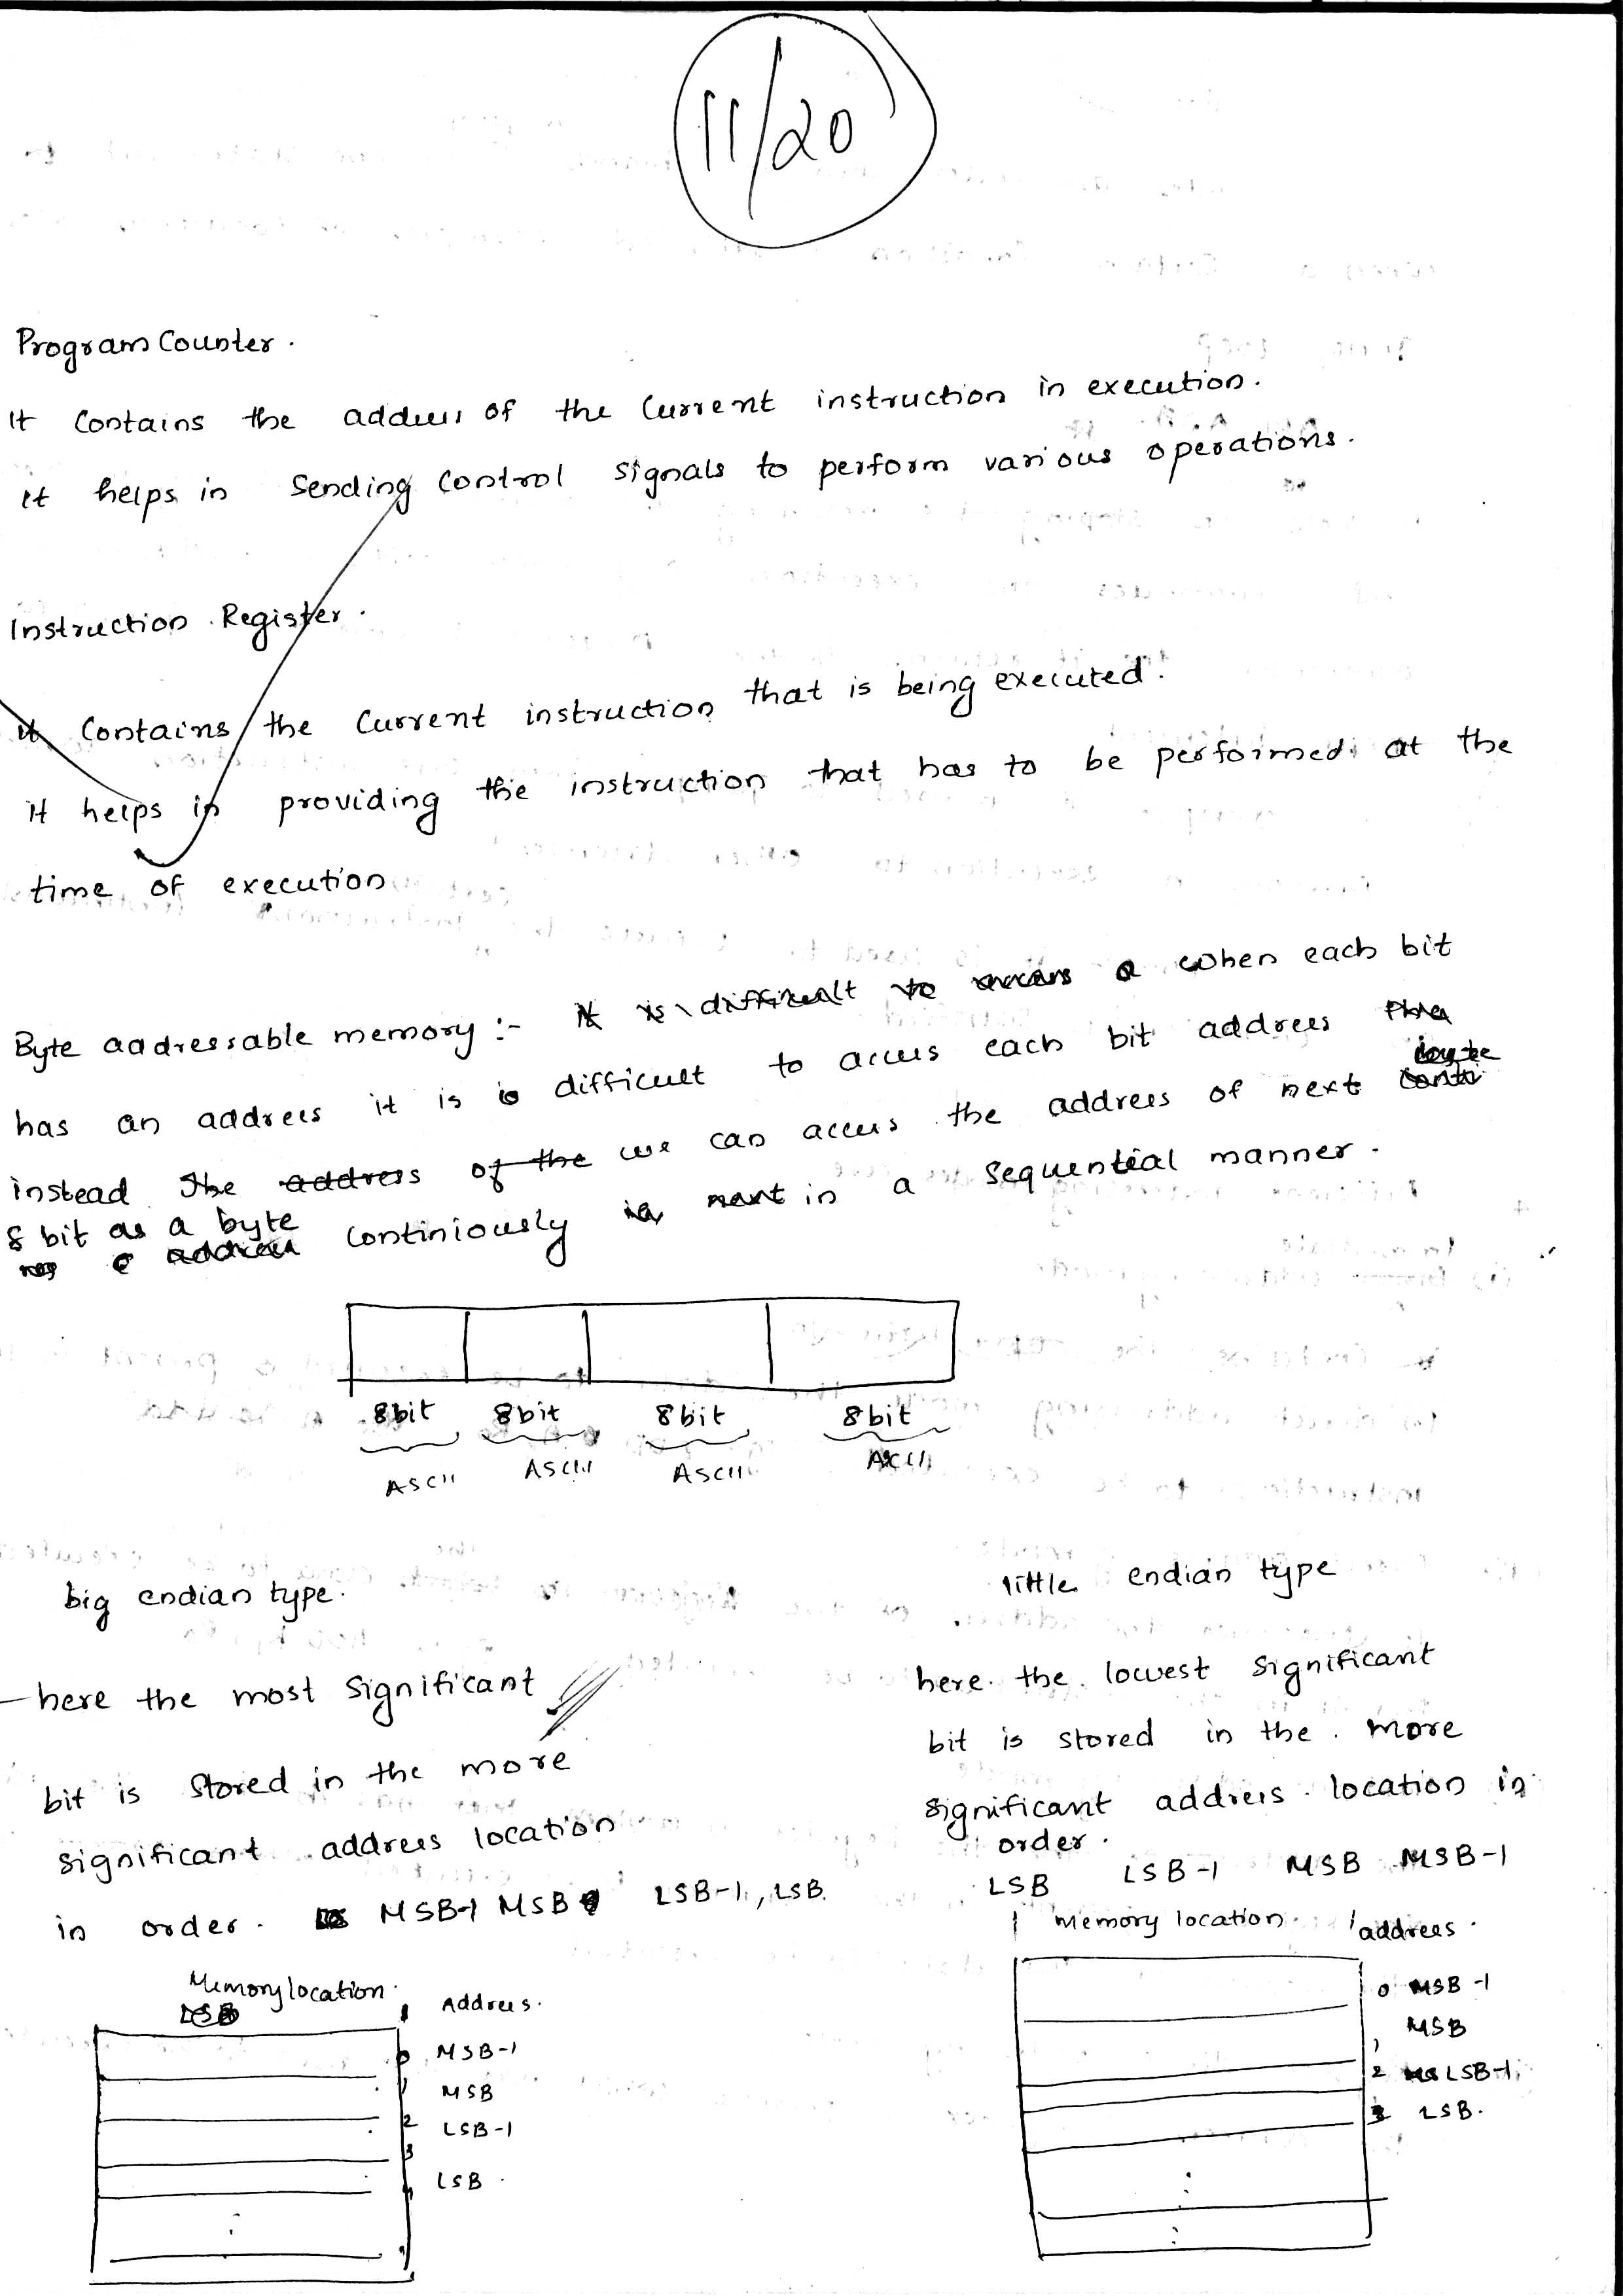 11/20
Program Counter.
It Contains the address of the Current instruction in execution.
it helps in Sending Control signals to perform various operations.
Instruction Register.
it Contains the Current instruction that is being executed.
it helps in providing the instruction that has to be performed at the
time of execution
Byte addressable memory :- it is difficult to access a when each bit
has an address it is difficult to access each bit address
instead The address of the we can access the address of next byte
8 bit as a byte
address continiously next in a sequential manner.
8bit 8bit 8bit 8bit
ASCII ASCII ASCII ASCII
big endian type.
here the most significant
bit is stored in the more
significant address location
in order. MSB-1 MSB LSB-1, LSB.
Memory location. Address.
LSB
0 MSB-1
1 MSB
2 LSB-1
3
4 LSB.
little endian type
here the lowest significant
bit is stored in the more
significant address location in
order.
LSB LSB-1 MSB MSB-1
Memory location. address.
0 MSB-1
1 MSB
2 LSB-1
3 LSB.